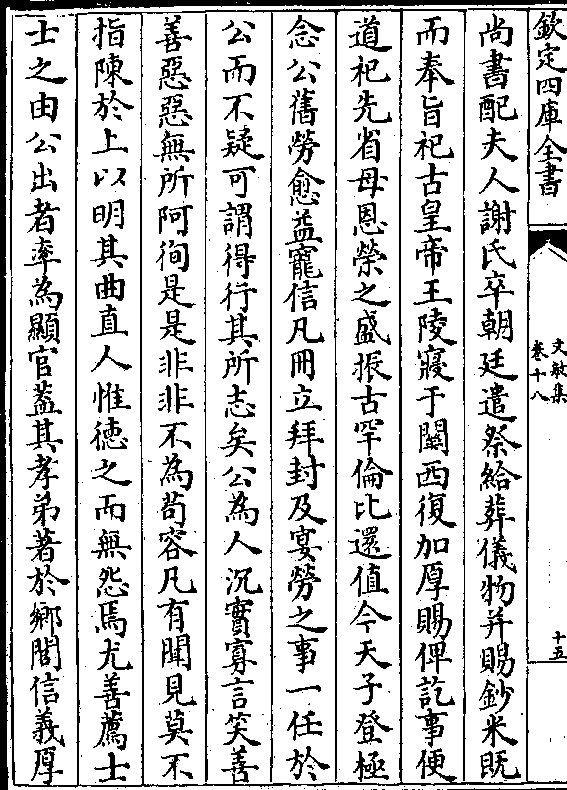 欽定四庫全書
文敏集
卷十八
十五
尚書配夫人謝氏卒朝廷遣祭給葬儀物并賜鈔米既
而奉旨祀古皇帝王陵寢于關西復加厚賜俾訖事便
道祀先省母恩榮之盛振古罕倫比還值今天子登極
念公舊勞愈益寵信凡冊立拜封及宴勞之事一任於
公而不疑可謂得行其所志矣公為人沉實寡言笑善
善惡惡無所阿徇是是非非不為苟容凡有聞見莫不
指陳於上以明其曲直人惟徳之而無怨焉尤善薦士
士之由公出者率為顯官葢其孝弟著於鄉閭信義厚